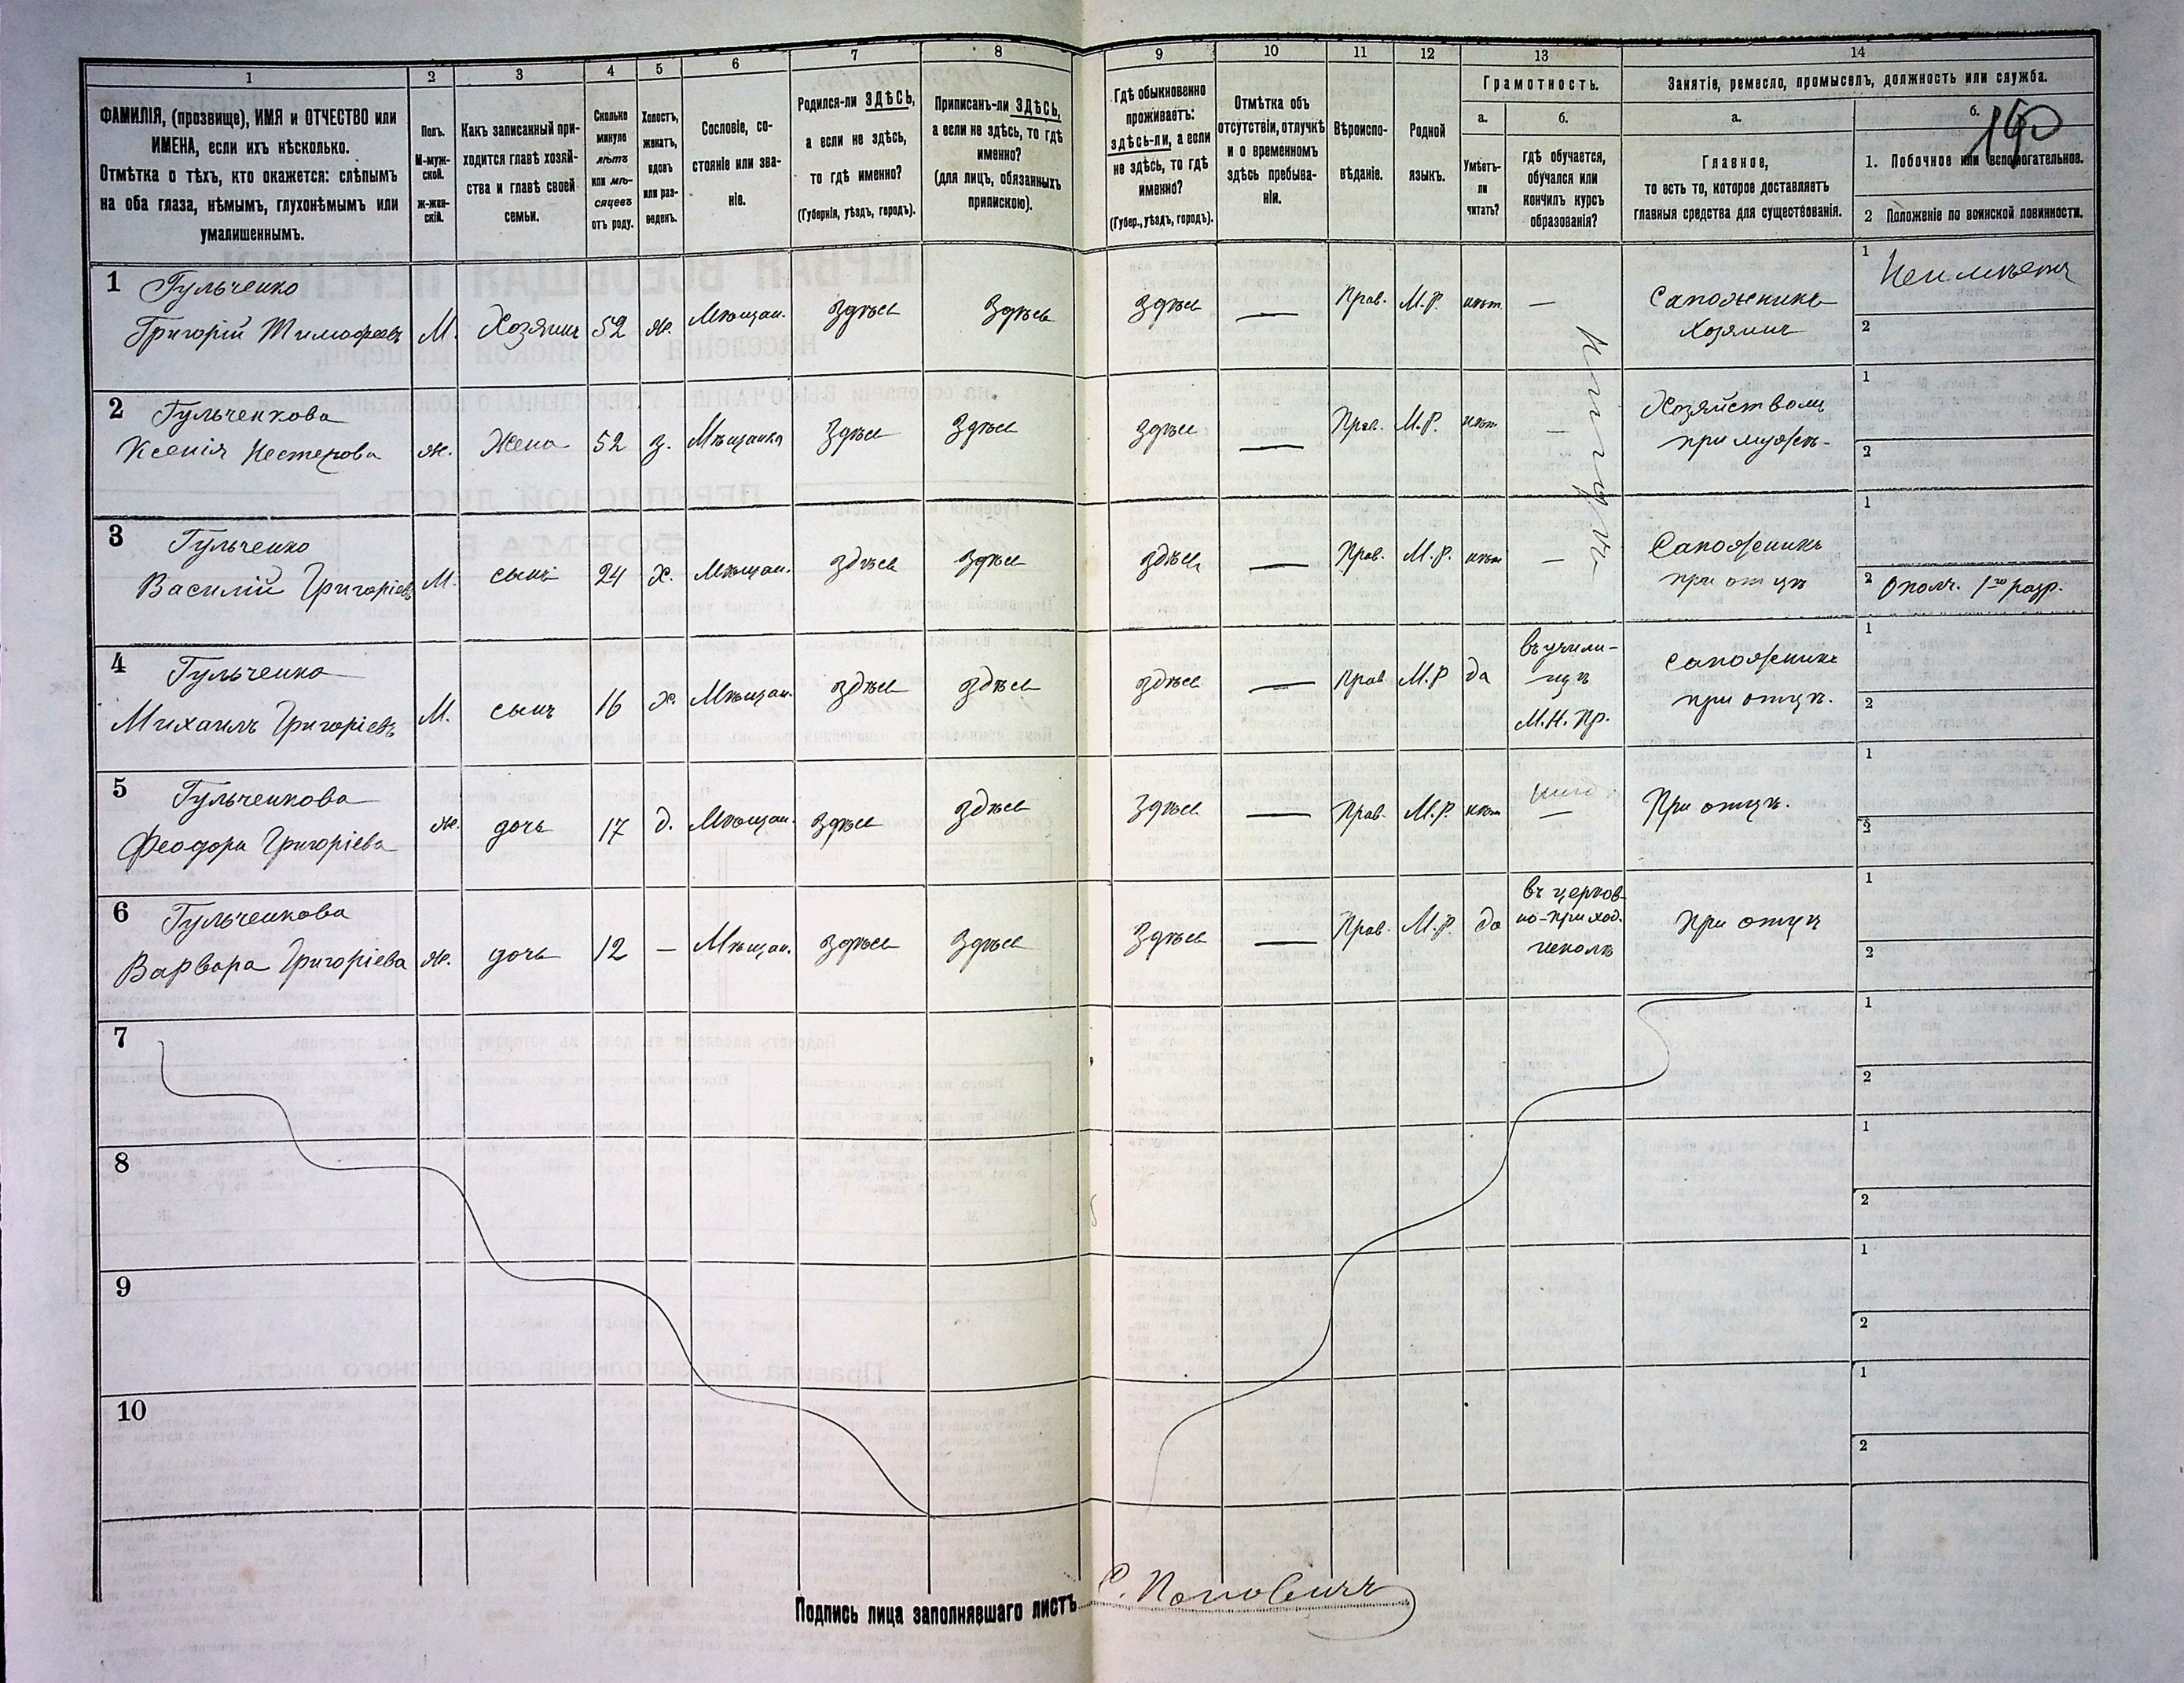 1
2
3
4
5
6
7
8
9
10
11
12
13
14
ФАМИЛІЯ, (прозвище), ИМЯ и ОТЧЕСТВО или
ИМЕНА, если ихъ нѣсколько.
Отмѣтка о тѣхъ, кто окажется: слѣпымъ
на оба глаза, нѣмымъ, глухонѣмымъ или
умалишеннымъ.
Полъ.
М-муж-
ской.
Ж-жен-
скій.
Какъ записанный при-
ходится главѣ хозяй-
ства и главѣ своей
семьи.
Сколько
минуло
лѣтъ
или мѣ-
сяцевъ
отъ роду.
Холостъ,
женатъ,
вдовъ
или раз-
веденъ.
Сословіе, со-
стояніе или зва-
ніе.
Родился-ли ЗДѢСЬ,
а если не здѣсь,
то гдѣ именно?
(Губернія, уѣздъ, городъ).
Приписанъ-ли ЗДѢСЬ,
а если не здѣсь, то гдѣ
именно?
(для лицъ, обязанныхъ
припискою).
Гдѣ обыкновенно
проживаетъ:
здѣсь-ли, а если
не здѣсь, то гдѣ
именно?
(Губер., уѣздъ, городъ).
Отмѣтка объ
отсутствіи, отлучкѣ
и о временномъ
здѣсь пребыва-
ніи.
Вѣроиспо-
вѣданіе.
Родной
языкъ.
Грамотность.
а.
Умѣетъ-
ли
читать?
б.
гдѣ обучается,
обучался или
кончилъ курсъ
образованія?
Занятіе, ремесло, промыселъ, должность или служба.
а.
Главное,
то есть то, которое доставляетъ
главныя средства для существованія.
б.
160
1. Побочное или вспомогательное.
2 Положеніе по воинской повинности.
1
Гульченко
Григорій Тимофеевъ
М.
Хозяинъ
52
ж.
Мѣщан.
Здѣсь
Здѣсь
Здѣсь
—
Прав.
М.Р.
нѣт
—
Сапожникъ
Хозяинъ
1
Неимѣетъ
2
2
Гульченкова
Ксенія Нестерова
ж.
Жена
52
з.
Мѣщанка
Здѣсь
Здѣсь
Здѣсь
—
Прав.
М.Р.
нѣт
—
Хозяйством
при мужѣ-
1
2
3
Гульченко
Василій Григоріевъ
М.
сынъ
24
х.
Мѣщан.
здѣсь
Здѣсь
здѣсь
—
Прав.
М.Р.
нѣт
—
Сапожникъ
при отцѣ
1
2 Ополч. 1го разр.
4
Гульченко
Михаилъ Григоріевъ
М.
сынъ
16
х.
Мѣщан.
здѣсь
здѣсь
здѣсь
—
Прав
М.Р
да
въ учили-
щѣ
М.Н.Пр.
сапожникъ
при отцѣ.
1
2
5
Гульченкова
Феодора Григоріева
ж.
дочь
17
д.
Мѣщан.
Здѣсь
здѣсь
Здѣсь
—
Прав.
М.Р.
нѣт
—
При отцѣ.
1
2
6
Гульченкова
Варвара Григоріева
ж.
дочь
12
—
Мѣщан.
Здѣсь
Здѣсь
Здѣсь
—
Прав.
М.Р.
да
въ церков-
но-приход.
школѣ
При отцѣ
1
2
7
1
2
8
1
2
9
1
2
10
1
2
Подпись лица заполнявшаго листъ
С. Поповичъ